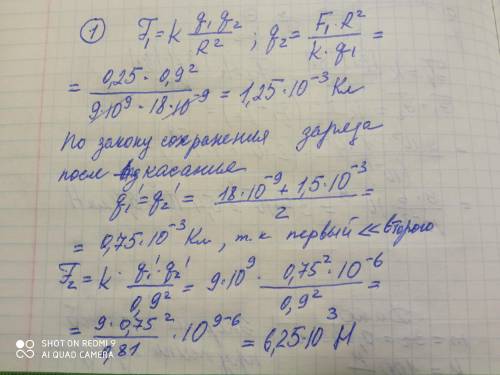 ① F₁ = k q₁ q₂ / R² ; q₂ = F₁ · R² / k · q₁ =
= 0,25 · 0,9² / 9·10⁹ · 18·10⁻⁹ = 1,25·10⁻³ Кл
По закону сохранения заряда
после касание
q₁' = q₂' = 18·10⁻⁹ + 1,5·10⁻³ / 2 =
= 0,75·10⁻³ Кл, т.к первый ≪ второго
F₂ = k · q₁' · q₂' / 0,9² = 9·10⁹ · 0,75² · 10⁻⁶ / 0,9² =
= 9 · 0,75² / 0,81 · 10⁹⁻⁶ = 6,25·10³ Н
SHOT ON REDMI 9
AI QUAD CAMERA